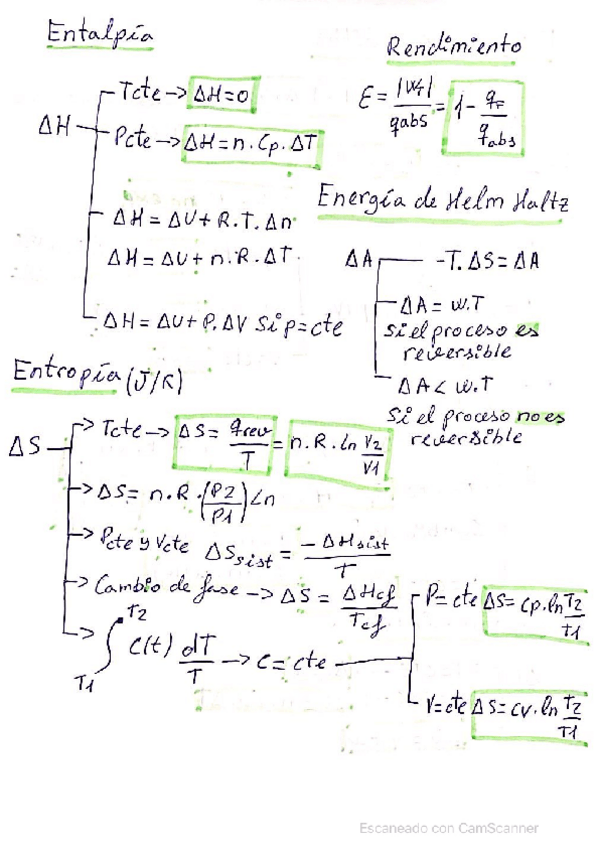 Entalpía
ΔH
Tcte → ΔH=0
Pcte → ΔH=n.Cp.ΔT
ΔH = ΔU + R.T.Δn
ΔH = ΔU + n.R.ΔT
ΔH = ΔU + P.ΔV Si p=cte
Rendimiento
qabs = 1 - qF/qabs
Energía de Helm Haltz
ΔA
-T.ΔS=ΔA
ΔA = w.T
Si el proceso es
reversible
ΔA < w.T
Si el proceso no es
reversible
Entropía (J/K)
ΔS
Tcte → ΔS = qrev/T = n.R.ln V2/V1
ΔS = n.R.(P2/P1) Ln
Pcte y Vcte ΔSsist = -ΔHsist/T
Cambio de fase → ΔS = ΔHcf/Tcf
∫ T2 T1 C(t) dT/T → C = cte
P=cte ΔS=Cp.ln T2/T1
V=cte ΔS=Cv.ln T2/T1
Escaneado con CamScanner